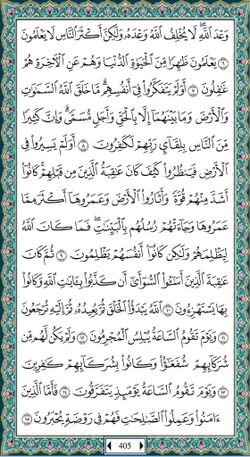 وَعْدَ ٱللَّهِ لَا يُخْلِفُ ٱللَّهُ وَعْدَهُۥ وَلَٰكِنَّ أَكْثَرَ ٱلنَّاسِ لَا يَعْلَمُونَ
٦ يَعْلَمُونَ ظَٰهِرًا مِّنَ ٱلْحَيَوٰةِ ٱلدُّنْيَا وَهُمْ عَنِ ٱلْءَاخِرَةِ هُمْ
غَٰفِلُونَ ٧ أَوَلَمْ يَتَفَكَّرُوا۟ فِىٓ أَنفُسِهِم مَّا خَلَقَ ٱللَّهُ ٱلسَّمَٰوَٰتِ
وَٱلْأَرْضَ وَمَا بَيْنَهُمَآ إِلَّا بِٱلْحَقِّ وَأَجَلٍ مُّسَمًّى وَإِنَّ كَثِيرًا
مِّنَ ٱلنَّاسِ بِلِقَآئِ رَبِّهِمْ لَكَٰفِرُونَ ٨ أَوَلَمْ يَسِيرُوا۟ فِى
ٱلْأَرْضِ فَيَنظُرُوا۟ كَيْفَ كَانَ عَٰقِبَةُ ٱلَّذِينَ مِن قَبْلِهِمْ كَانُوٓا۟
أَشَدَّ مِنْهُمْ قُوَّةً وَأَثَارُوا۟ ٱلْأَرْضَ وَعَمَرُوهَآ أَكْثَرَ مِمَّا
عَمَرُوهَا وَجَآءَتْهُمْ رُسُلُهُم بِٱلْبَيِّنَٰتِ فَمَا كَانَ ٱللَّهُ
لِيَظْلِمَهُمْ وَلَٰكِن كَانُوٓا۟ أَنفُسَهُمْ يَظْلِمُونَ ٩ ثُمَّ كَانَ
عَٰقِبَةَ ٱلَّذِينَ أَسَٰٓـُٔوا۟ ٱلسُّوٓأَىٰٓ أَن كَذَّبُوا۟ بِـَٔايَٰتِ ٱللَّهِ وَكَانُوا۟
بِهَا يَسْتَهْزِءُونَ ١٠ ٱللَّهُ يَبْدَؤُا۟ ٱلْخَلْقَ ثُمَّ يُعِيدُهُۥ ثُمَّ إِلَيْهِ تُرْجَعُونَ
١١ وَيَوْمَ تَقُومُ ٱلسَّاعَةُ يُبْلِسُ ٱلْمُجْرِمُونَ ١٢ وَلَمْ يَكُن لَّهُم مِّن
شُرَكَآئِهِمْ شُفَعَٰٓؤُا۟ وَكَانُوا۟ بِشُرَكَآئِهِمْ كَٰفِرِينَ
١٣ وَيَوْمَ تَقُومُ ٱلسَّاعَةُ يَوْمَئِذٍ يَتَفَرَّقُونَ ١٤ فَأَمَّا ٱلَّذِينَ
ءَامَنُوا۟ وَعَمِلُوا۟ ٱلصَّٰلِحَٰتِ فَهُمْ فِى رَوْضَةٍ يُحْبَرُونَ ١٥
405